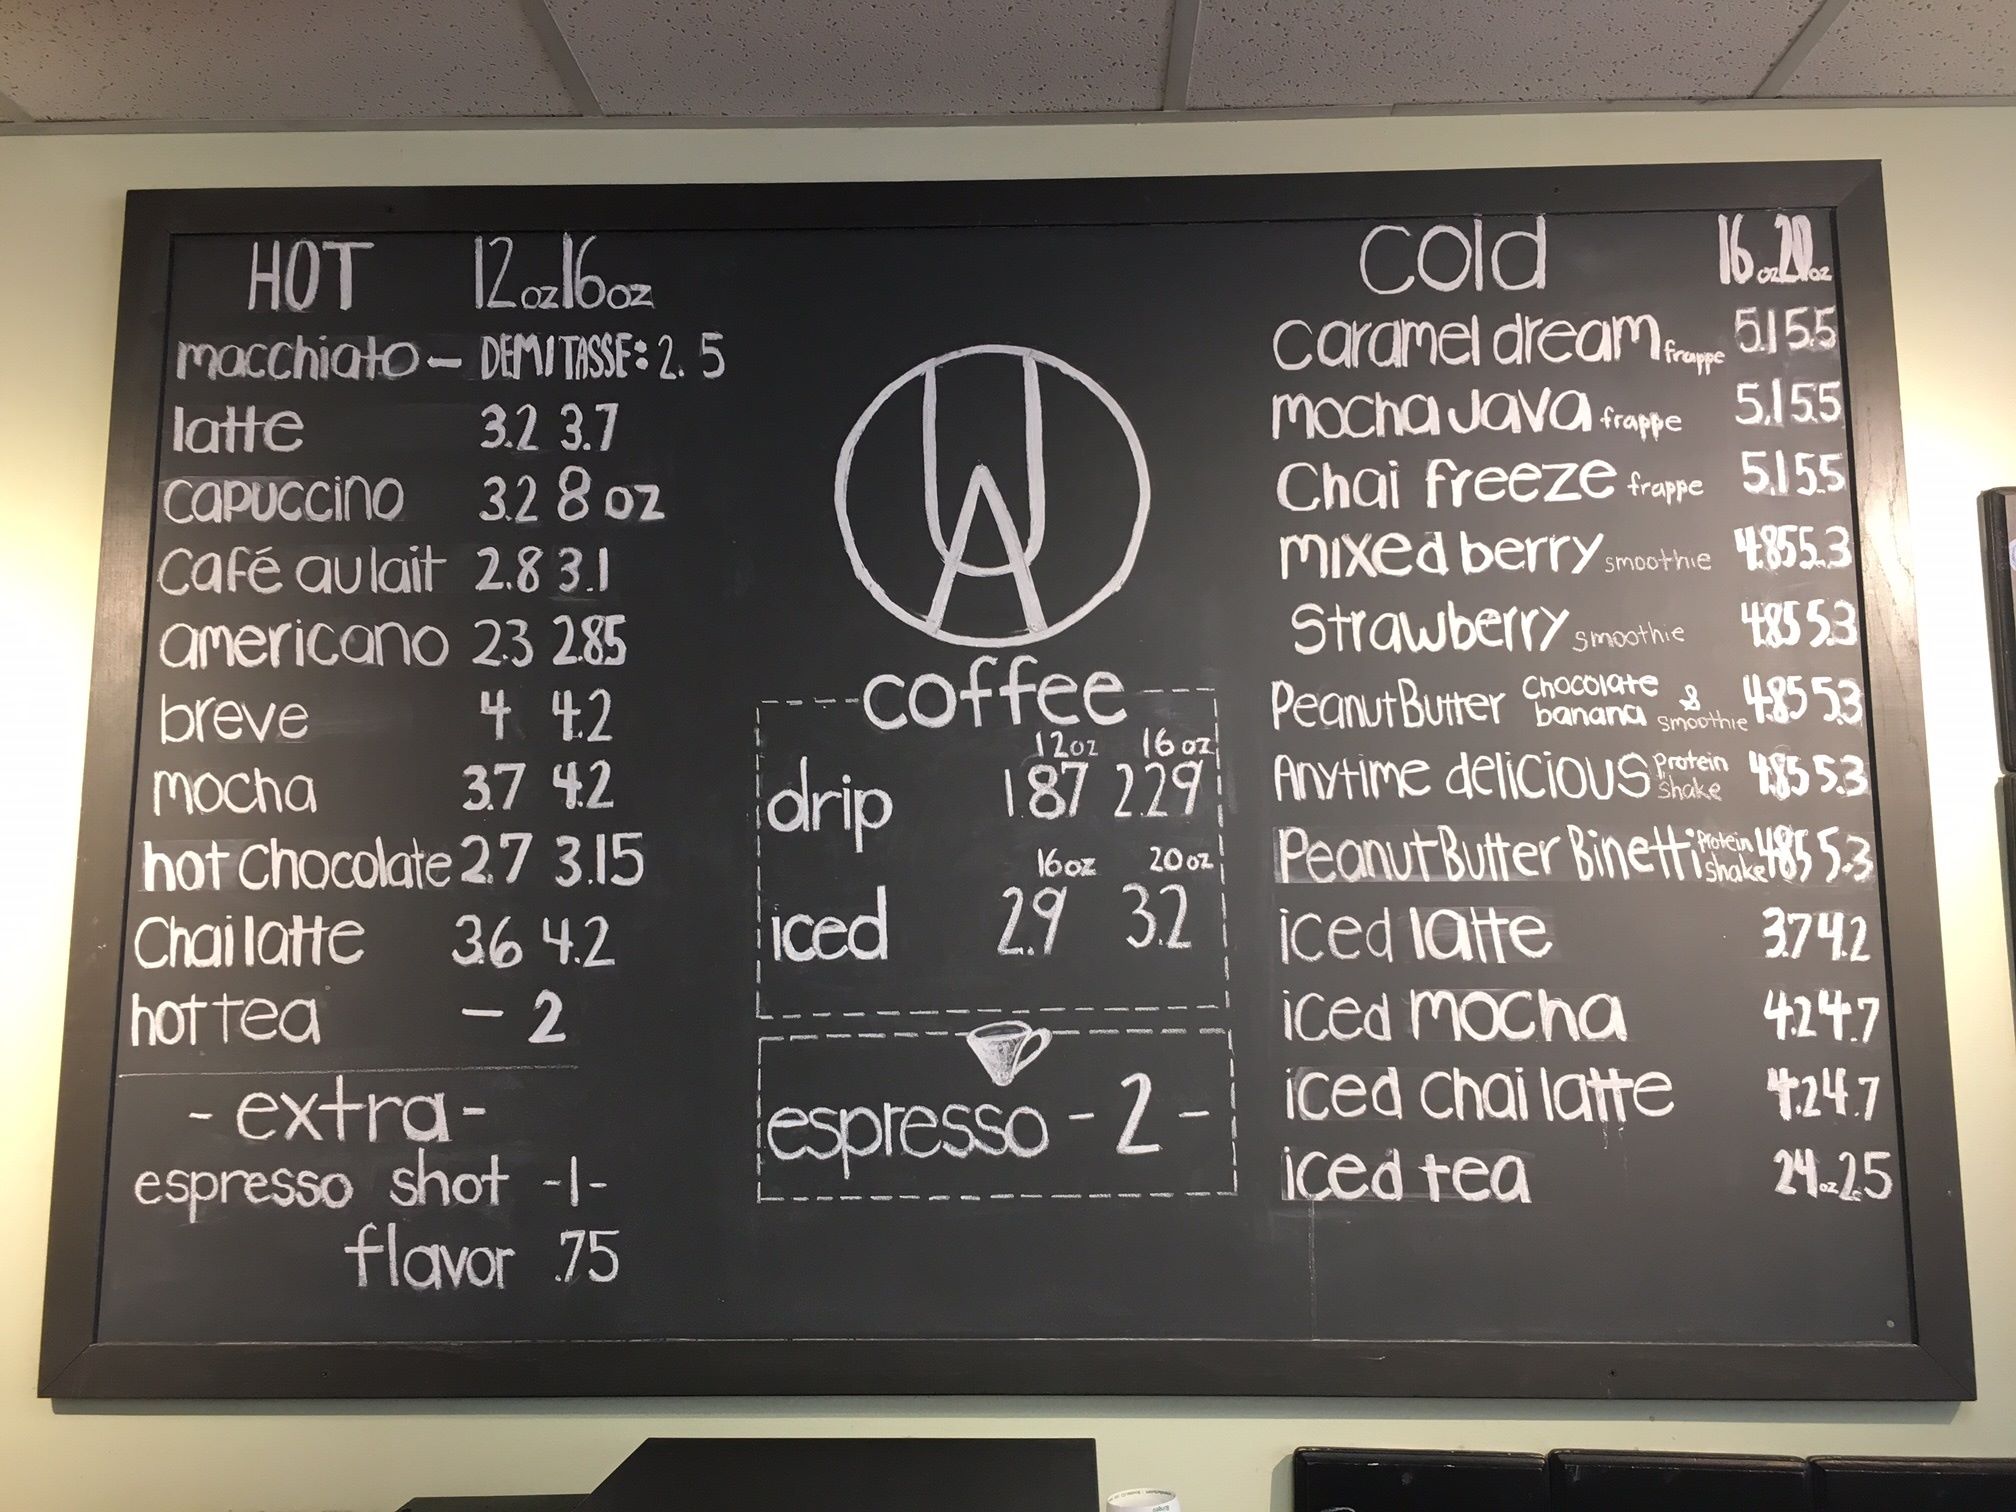 HOT 12oz 16oz
macchiato - DEMITASSE: 2.5
latte 3.2 3.7
capuccino 3.2 8 oz
Café au lait 2.8 3.1
americano 2.3 2.85
breve 4 4.2
mocha 3.7 4.2
hot Chocolate 2.7 3.15
Chai latte 3.6 4.2
hot tea - 2
- extra -
espresso shot -1-
flavor .75
UA
coffee
12oz 16oz
drip 1.87 2.29
16oz 20oz
iced 2.9 3.2
espresso - 2 -
Cold 16oz 20oz
Caramel dream frappe 5.1 5.5
mocha Java frappe 5.1 5.5
Chai freeze frappe 5.1 5.5
mixed berry smoothie 4.85 5.3
Strawberry smoothie 4.85 5.3
Peanut Butter Chocolate & banana smoothie 4.85 5.3
Anytime delicious Protein shake 4.85 5.3
Peanut Butter Binetti Protein shake 4.85 5.3
iced latte 3.7 4.2
iced mocha 4.2 4.7
iced chai latte 4.2 4.7
iced tea 24oz 2.5